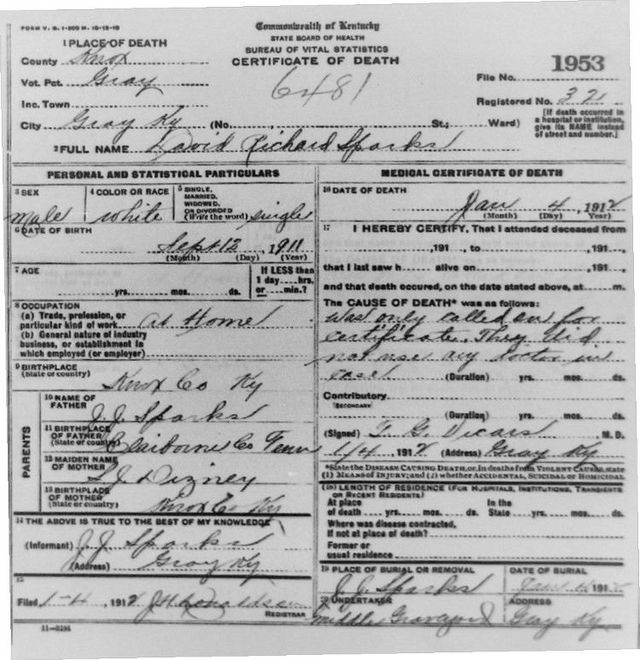 FORM V. S. 1-300 M 10-13-10
Commonwealth of Kentucky
STATE BOARD OF HEALTH
BUREAU OF VITAL STATISTICS
CERTIFICATE OF DEATH
1 PLACE OF DEATH
County Knox
Vot. Pct. Gray
Inc. Town
City Gray Ky (No. St.; Ward)
6481
File No. 1953
Registered No. 321
[If death occurred in a hospital or institution, give its NAME instead of street and number.]
2 FULL NAME David Richard Sparks
PERSONAL AND STATISTICAL PARTICULARS
3 SEX
male
4 COLOR OR RACE
white
5 SINGLE, MARRIED, WIDOWED, OR DIVORCED (Write the word) single
6 DATE OF BIRTH
Sept 12, 1911
(Month) (Day) (Year)
7 AGE
yrs. mos. ds.
If LESS than 1 day hrs. or min.?
8 OCCUPATION
(a) Trade, profession, or particular kind of work At Home
(b) General nature of industry business, or establishment in which employed (or employer)
9 BIRTHPLACE
(State or country)
Knox Co Ky
PARENTS
10 NAME OF FATHER
J. J. Sparks
11 BIRTHPLACE OF FATHER
(State or country) Claiborne Co Tenn
12 MAIDEN NAME OF MOTHER
S J Dizney
13 BIRTHPLACE OF MOTHER
(State or country) Knox Co Ky
14 THE ABOVE IS TRUE TO THE BEST OF MY KNOWLEDGE
(Informant) J. J. Sparks
(Address) Gray Ky
15
Filed 1-4, 1912 J H Donaldson
REGISTRAR
11-3184
MEDICAL CERTIFICATE OF DEATH
16 DATE OF DEATH
Jan 4, 1912
(Month) (Day) (Year)
17 I HEREBY CERTIFY, That I attended deceased from
, 191 , to , 191 ,
that I last saw h alive on , 191 ,
and that death occured, on the date stated above, at m.
The CAUSE OF DEATH* was as follows:
was only called on for
certificate. They did
not use any doctor in
case (Duration) yrs. mos. ds.
Contributory
SECONDARY
(Duration) yrs. mos. ds.
(Signed) T. G. Vicars M. D.
1/4, 1912 (Address) Gray Ky
*State the DISEASE CAUSING DEATH, or, in deaths from VIOLENT CAUSES, state (1) MEANS OF INJURY; and (2) whether ACCIDENTAL, SUICIDAL or HOMICIDAL
18 LENGTH OF RESIDENCE (FOR HOSPITALS, INSTITUTIONS, TRANSIENTS OR RECENT RESIDENTS)
At place of death yrs. mos. ds. In the State yrs. mos. ds.
Where was disease contracted, If not at place of death?
Former or usual residence
19 PLACE OF BURIAL OR REMOVAL
J. J. Sparks
DATE OF BURIAL
1912
20 UNDERTAKER
middle Graveyard
ADDRESS
Gray Ky